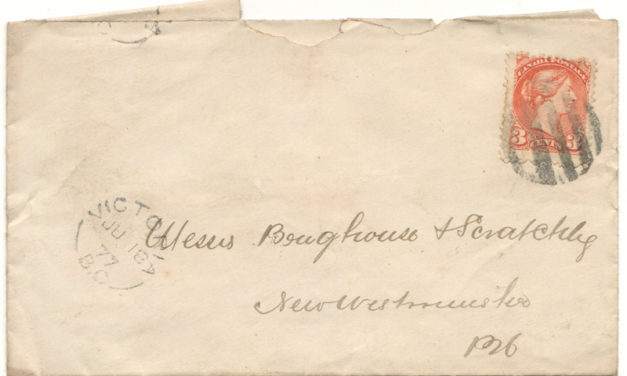 CANADA POSTAGE
3 3
VICTO
JU 18
77
B.C
Messrs Boughouse & Scratchly
New Westminster